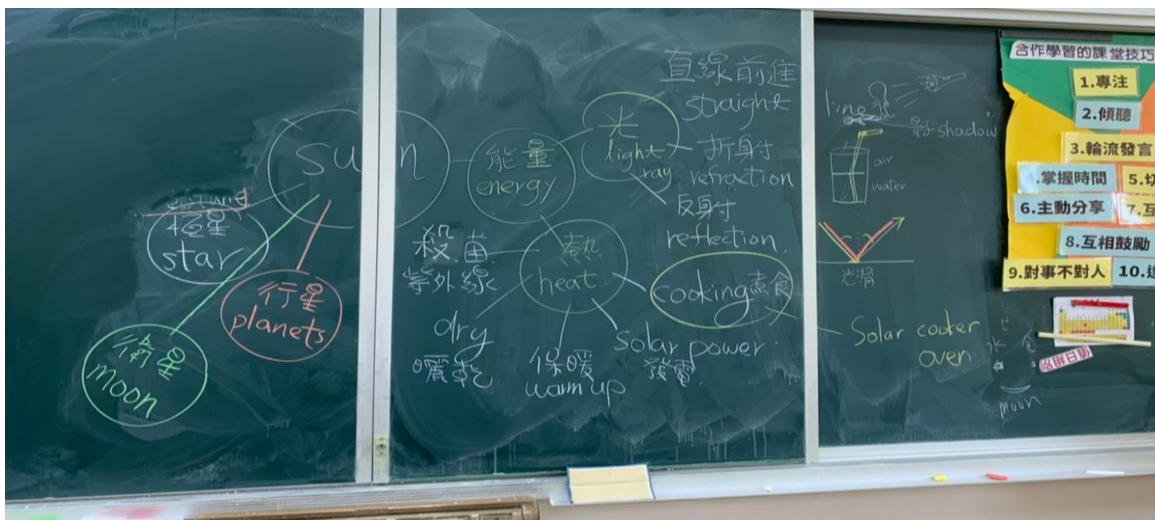 sun
恆星
star
行星
planets
衛星
moon
能量
energy
光
light
ray
直線前進
straight
折射
refraction
反射
reflection
熱
heat
殺菌
紫外線
dry
曬乾
保暖
warm up
solar power
發電
cooking 煮食
Solar cooker
oven
line
影 shadow
air
water
光滑
水
金
moon
合作學習的課堂技巧
1.專注
2.傾聽
3.輪流發言
4.掌握時間
5.切
6.主動分享
7.互
8.互相鼓勵
9.對事不對人
10.